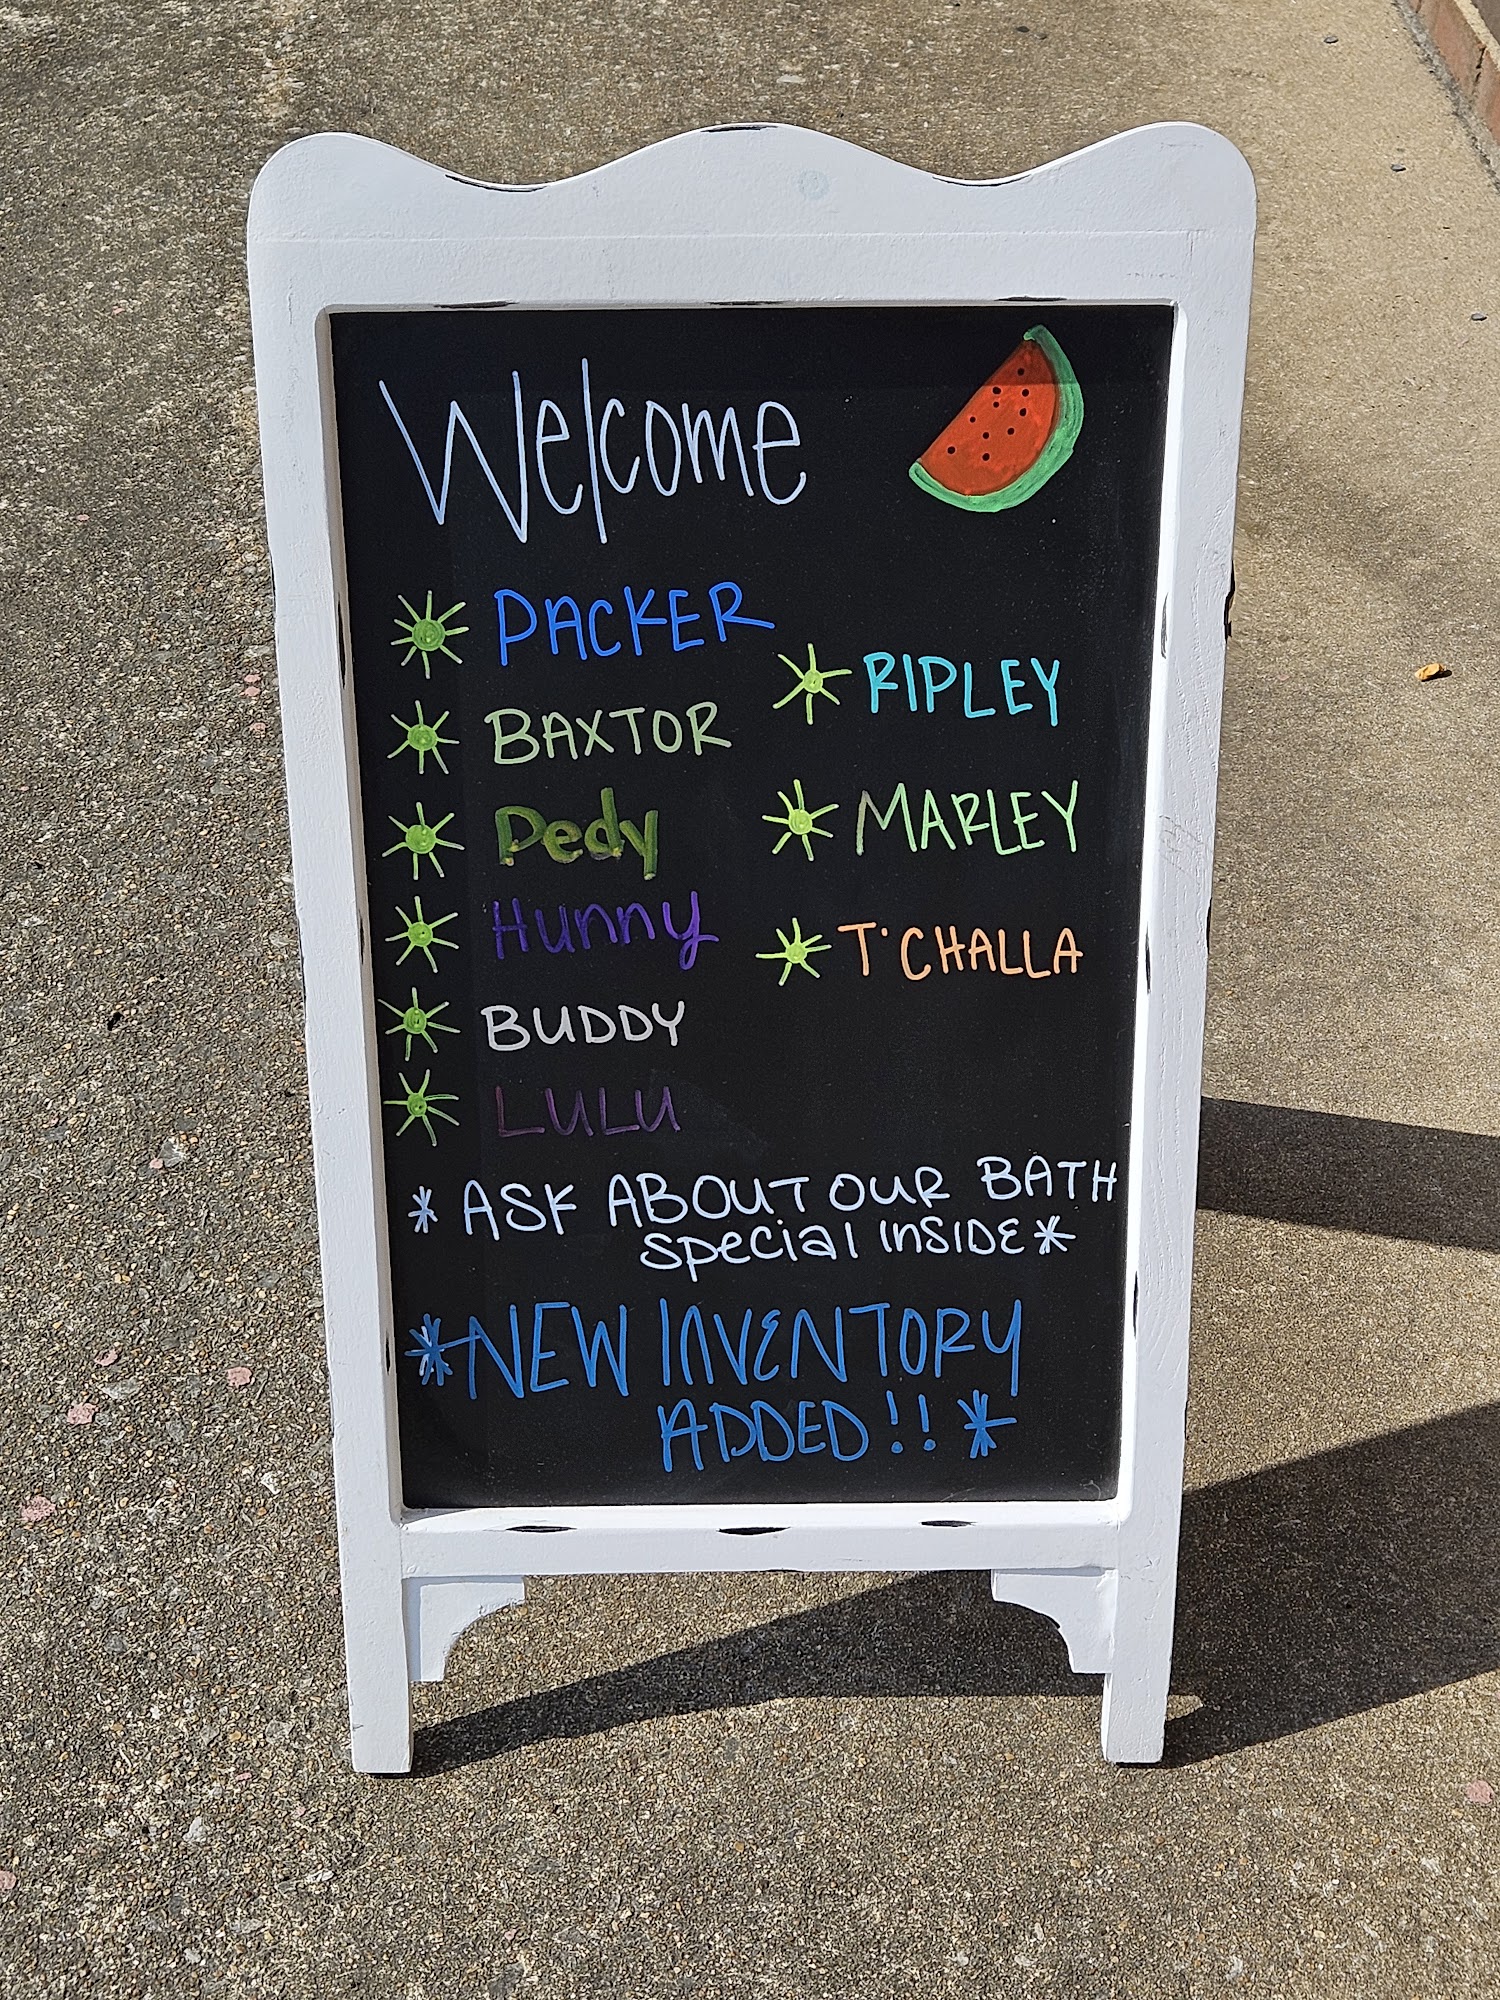 Welcome
PACKER
BAXTOR
Pedy
Hunny
BUDDY
LULU
RIPLEY
MARLEY
T'CHALLA
* ASK ABOUT OUR BATH
special INSIDE *
* NEW INVENTORY
ADDED!! *